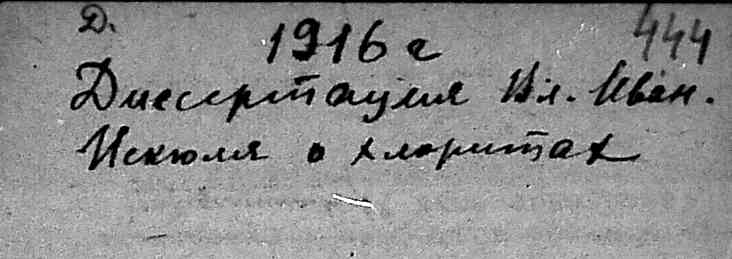 Д.
444
1916 г
Диссертация Вл. Иван.
Искюля о хлоритах